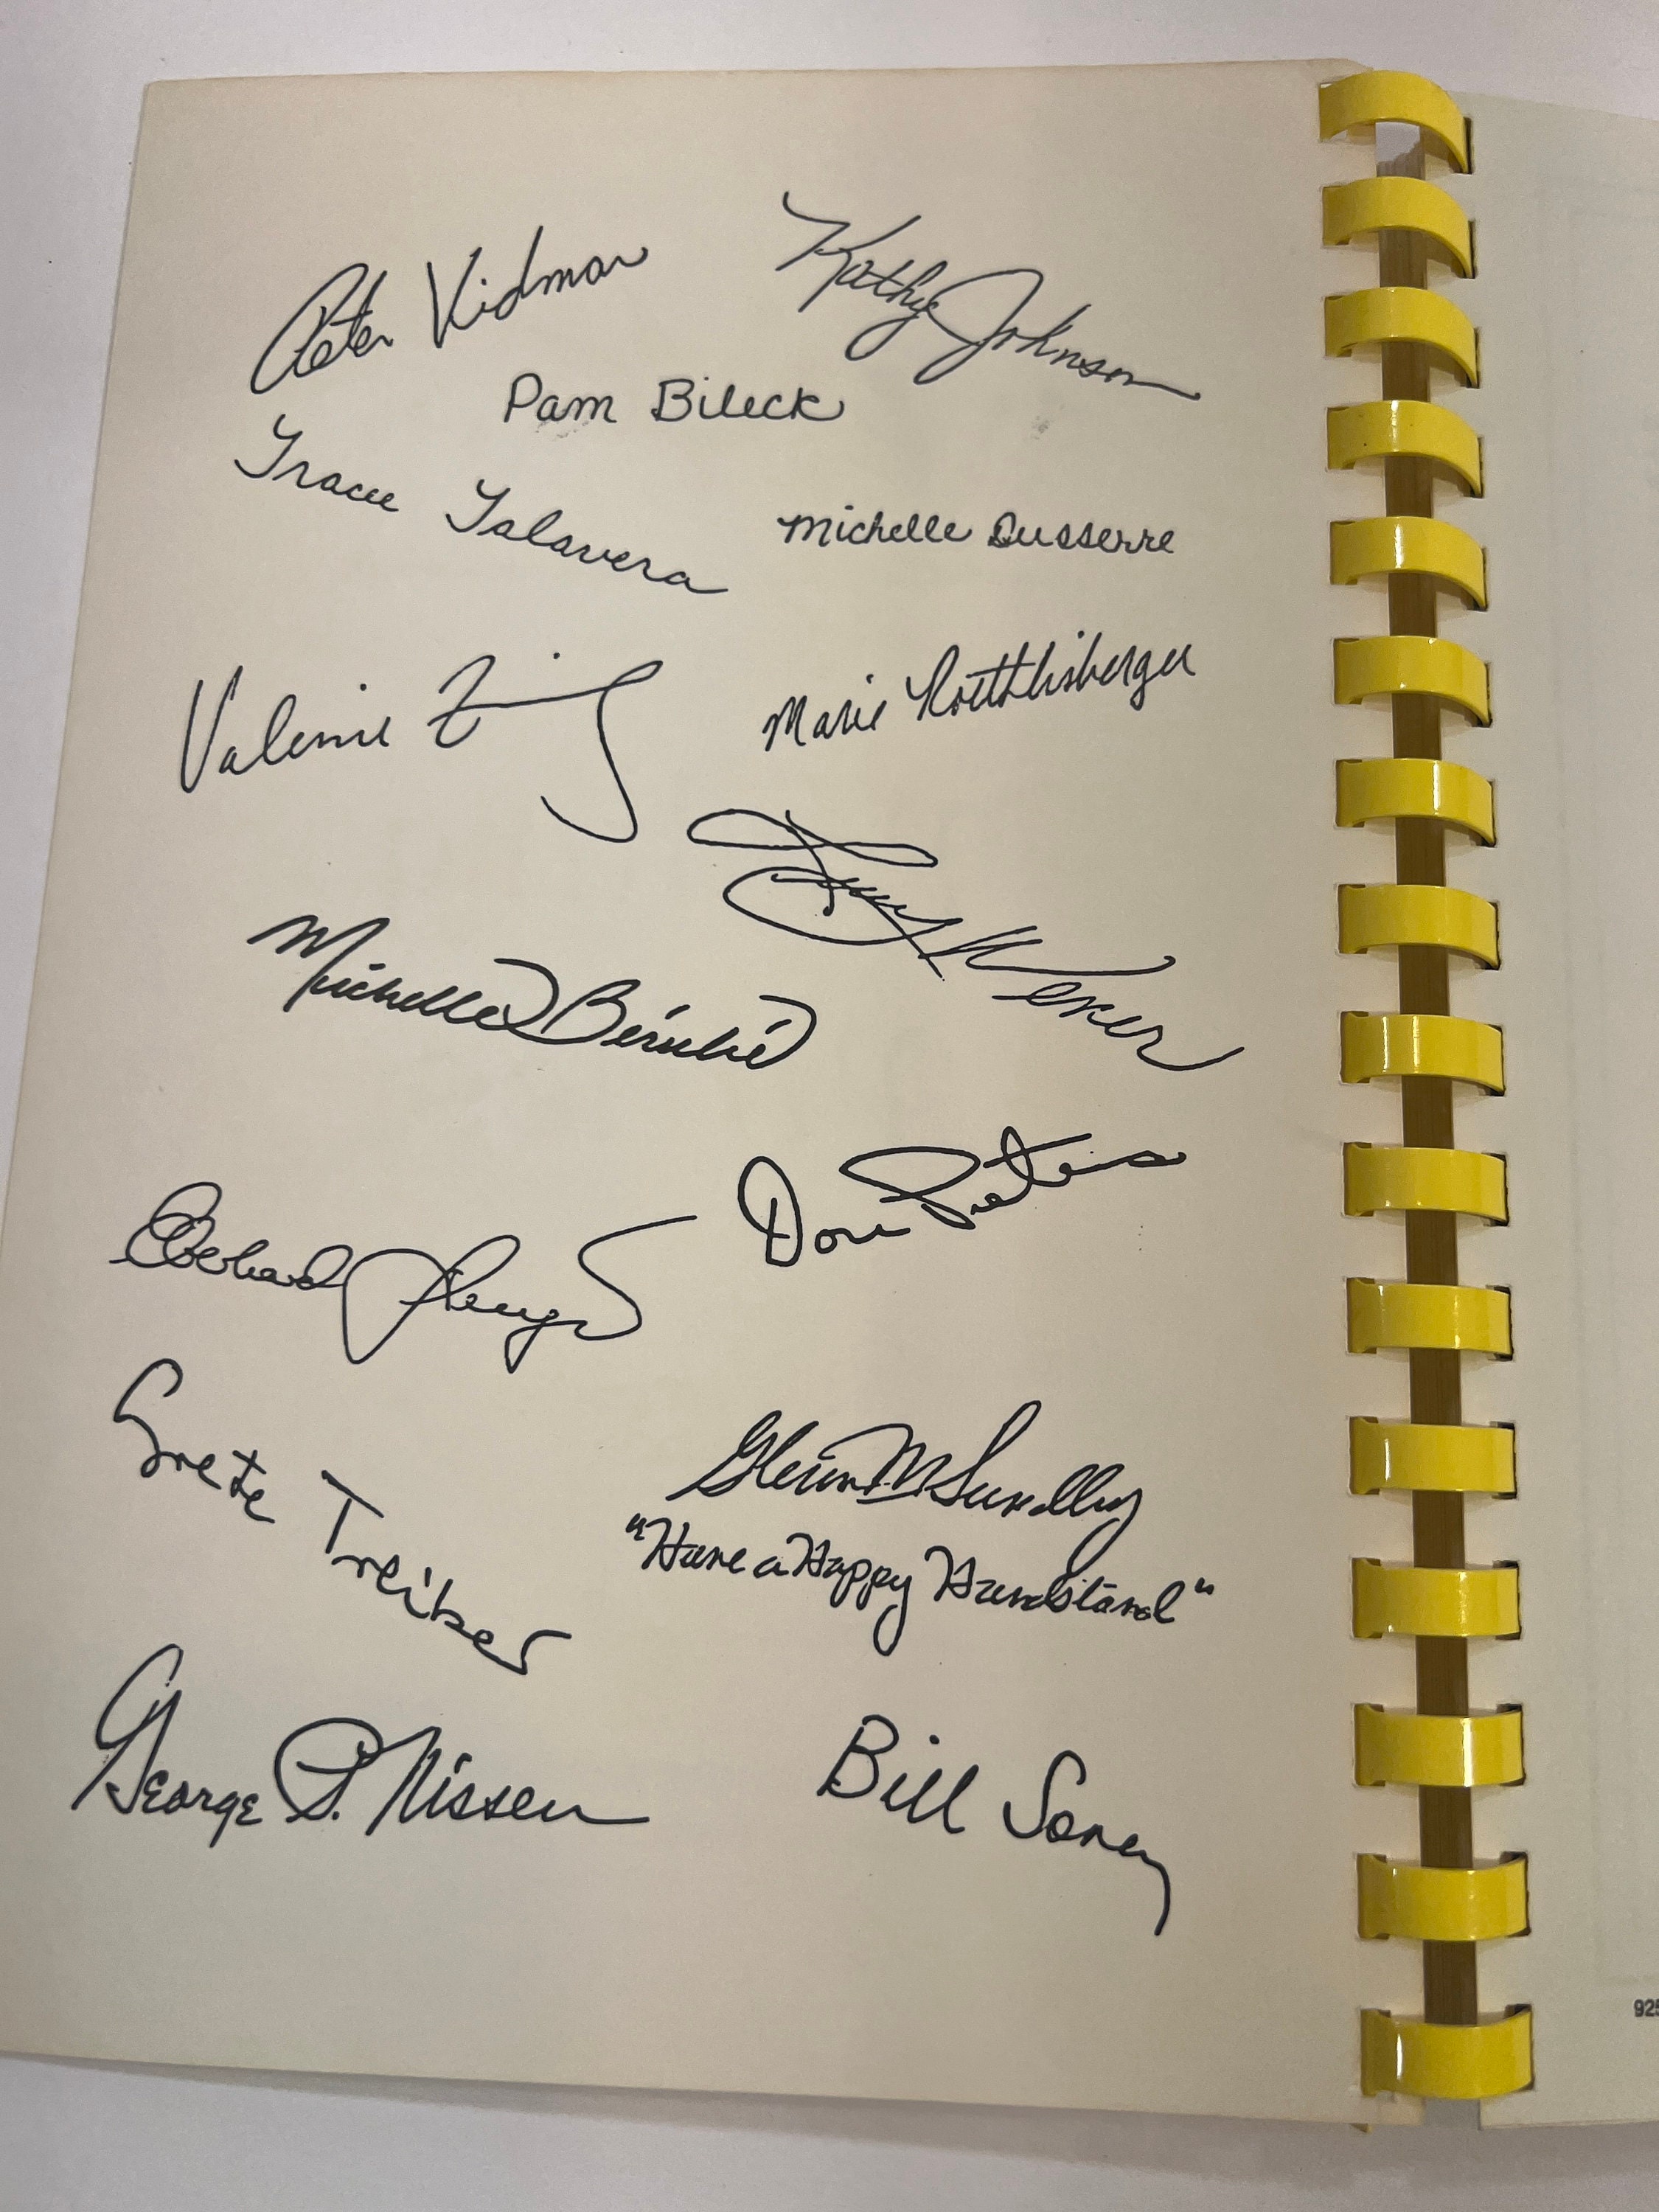 Peter Vidmar
Kathy Johnson
Pam Bileck
Tracee Talavera
Michelle Dusserre
Valerie
Marie Roethlisberger
Michelle Bérubé
Don Peters
Grete Treiber
Glenn M Sundby
"Have a Happy Handstand"
George P. Nissen
Bill Sorey
925